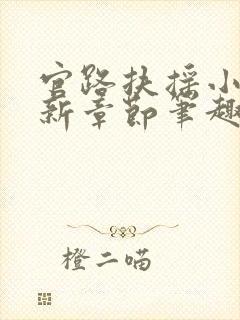 官路扶摇小
新章节笔趣
橙二喵